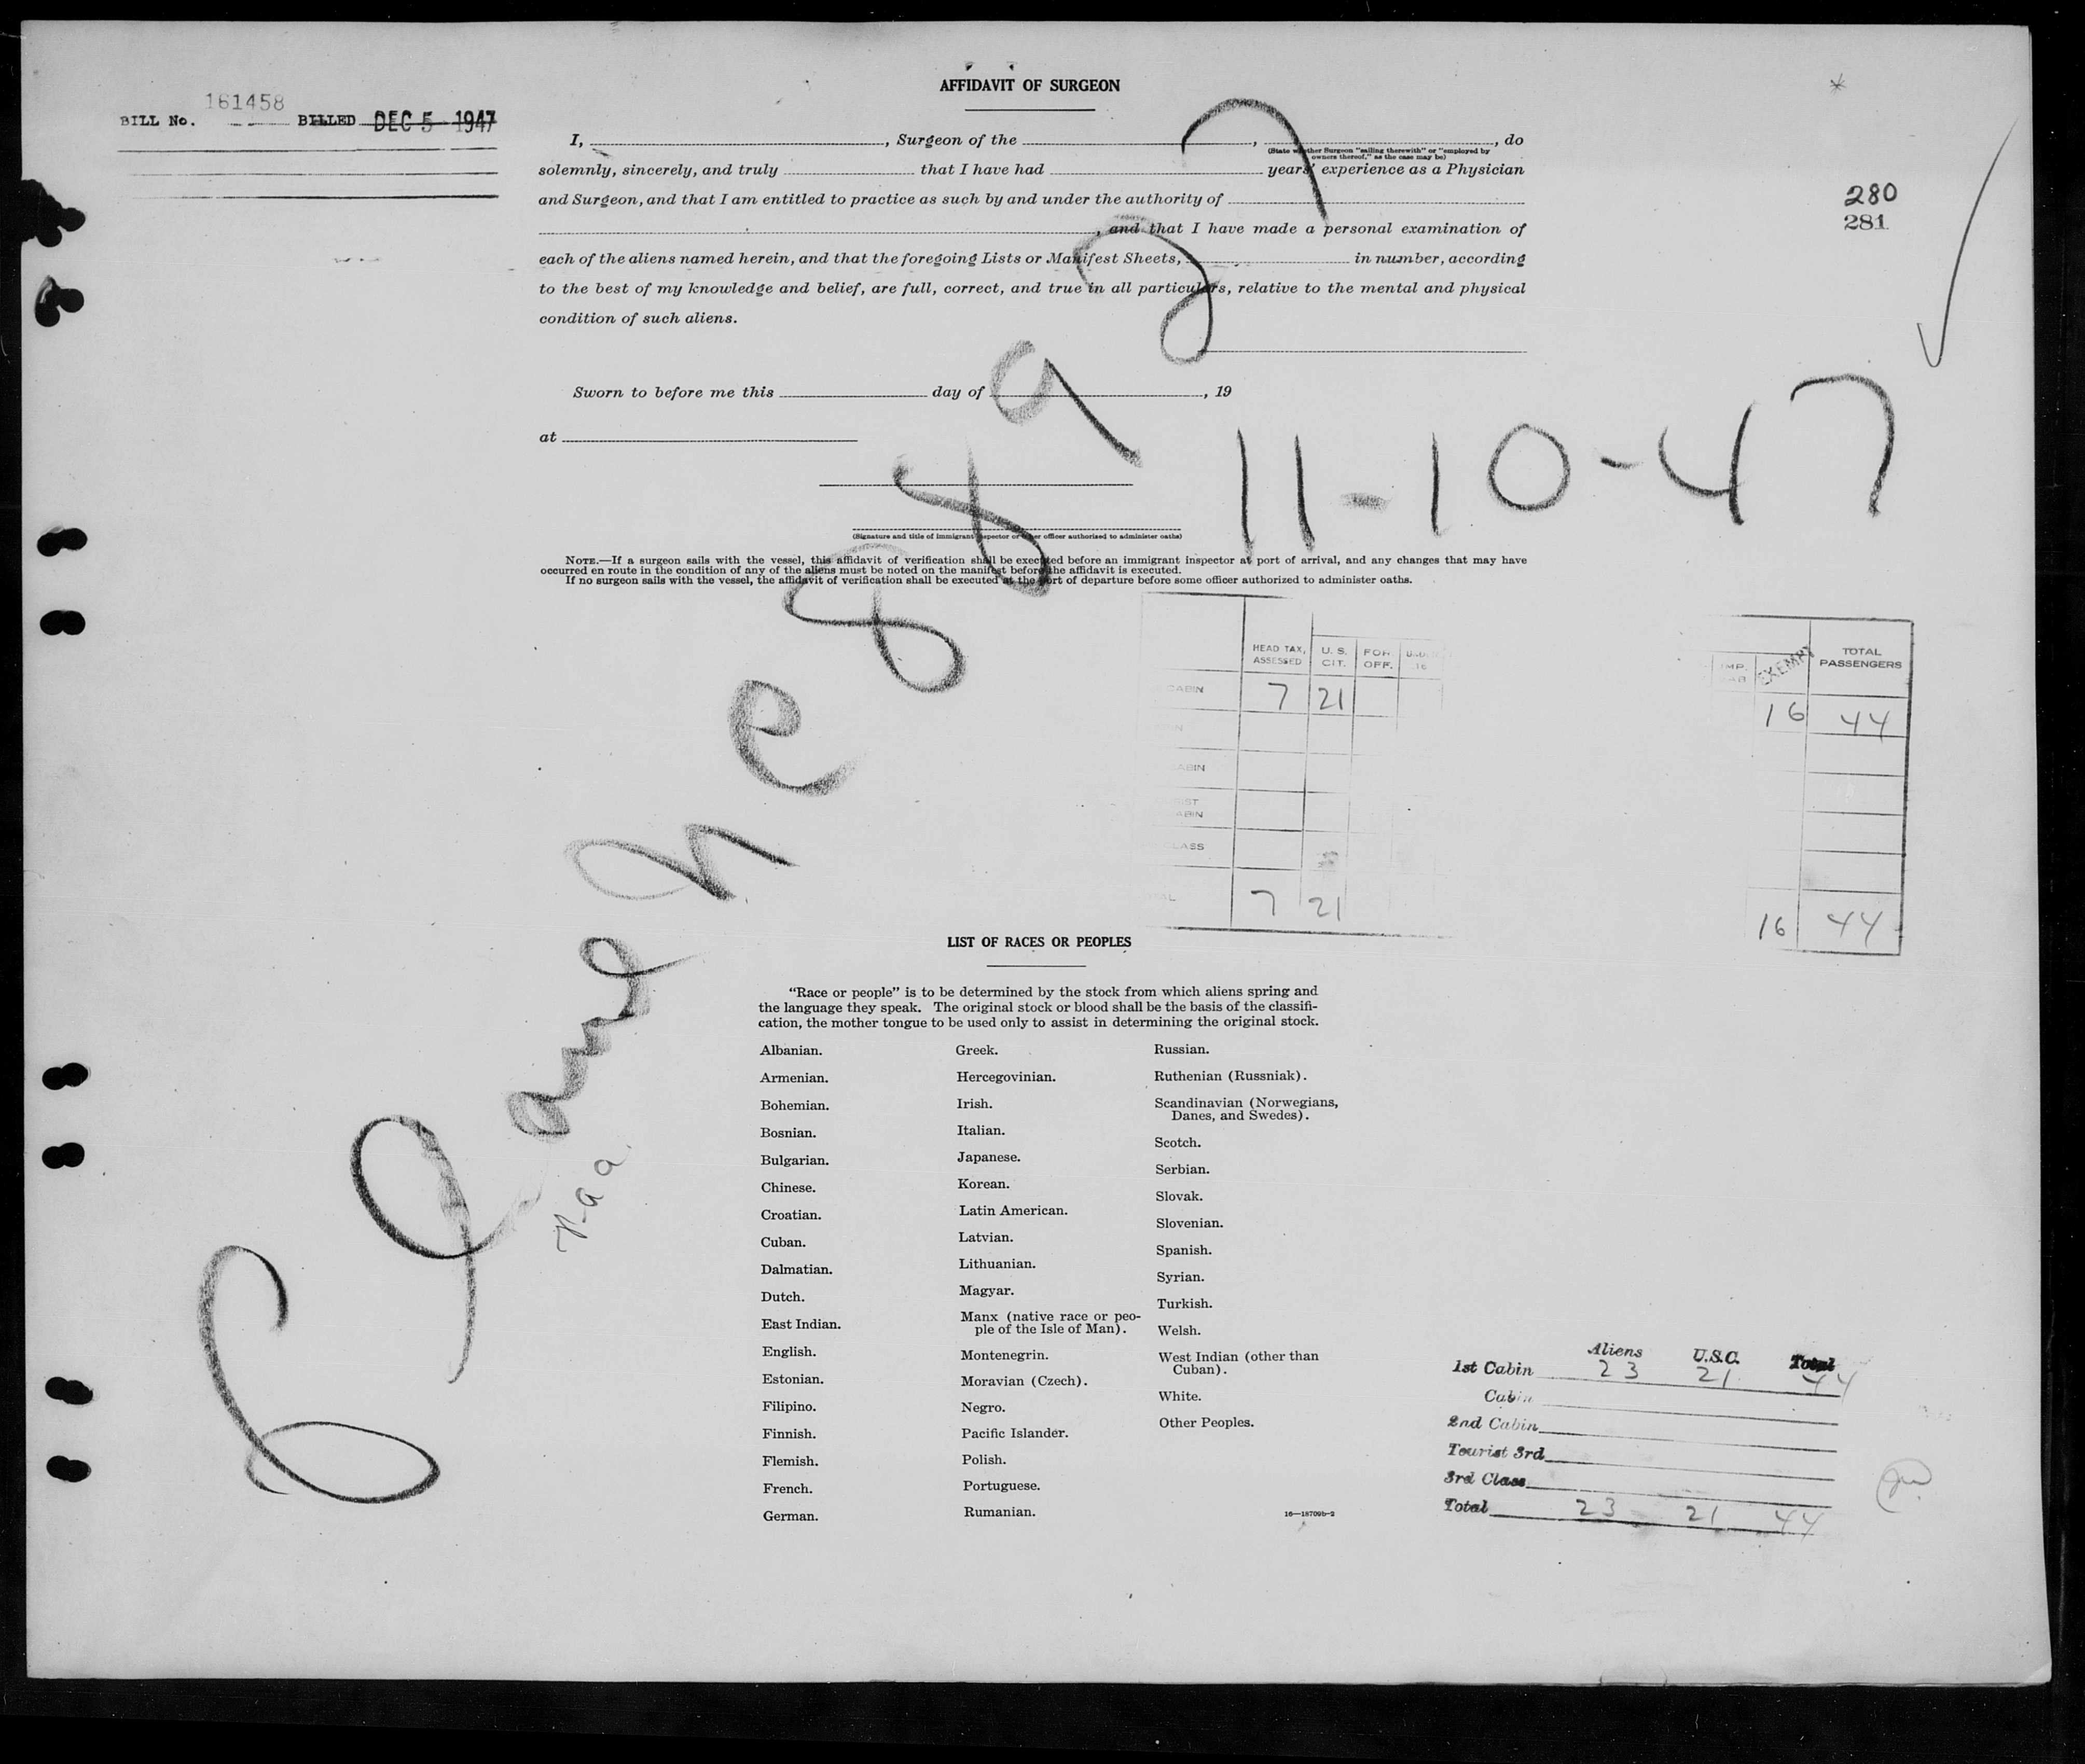 AFFIDAVIT OF SURGEON
*
161458
BILL No. BILLED DEC 5 1947
I, , Surgeon of the , , do
(State whether Surgeon "sailing therewith" or "employed by
owners thereof," as the case may be)
solemnly, sincerely, and truly that I have had years' experience as a Physician
and Surgeon, and that I am entitled to practice as such by and under the authority of
, and that I have made a personal examination of
each of the aliens named herein, and that the foregoing Lists or Manifest Sheets, in number, according
to the best of my knowledge and belief, are full, correct, and true in all particulars, relative to the mental and physical
condition of such aliens.
280
281
Sworn to before me this day of , 19
at
11-10-47
(Signature and title of immigrant inspector or other officer authorized to administer oaths)
NOTE.—If a surgeon sails with the vessel, this affidavit of verification shall be executed before an immigrant inspector at port of arrival, and any changes that may have
occurred en route in the condition of any of the aliens must be noted on the manifest before the affidavit is executed.
If no surgeon sails with the vessel, the affidavit of verification shall be executed at the port of departure before some officer authorized to administer oaths.
88927
HEAD TAX, ASSESSED U. S. CIT. FOR. OFF. EXEMPT TOTAL PASSENGERS
CABIN 7 21 16 44
7 21 16 44
LIST OF RACES OR PEOPLES
"Race or people" is to be determined by the stock from which aliens spring and
the language they speak. The original stock or blood shall be the basis of the classifi-
cation, the mother tongue to be used only to assist in determining the original stock.
Albanian.
Armenian.
Bohemian.
Bosnian.
Bulgarian.
Chinese.
Croatian.
Cuban.
Dalmatian.
Dutch.
East Indian.
English.
Estonian.
Filipino.
Finnish.
Flemish.
French.
German.
Greek.
Hercegovinian.
Irish.
Italian.
Japanese.
Korean.
Latin American.
Latvian.
Lithuanian.
Magyar.
Manx (native race or peo-
ple of the Isle of Man).
Montenegrin.
Moravian (Czech).
Negro.
Pacific Islander.
Polish.
Portuguese.
Rumanian.
Russian.
Ruthenian (Russniak).
Scandinavian (Norwegians,
Danes, and Swedes).
Scotch.
Serbian.
Slovak.
Slovenian.
Spanish.
Syrian.
Turkish.
Welsh.
West Indian (other than
Cuban).
White.
Other Peoples.
16—18709b-2
Aliens U.S.C. Total
1st Cabin 23 21 44
Cabin
2nd Cabin
Tourist 3rd
3rd Class
Total 23 21 44